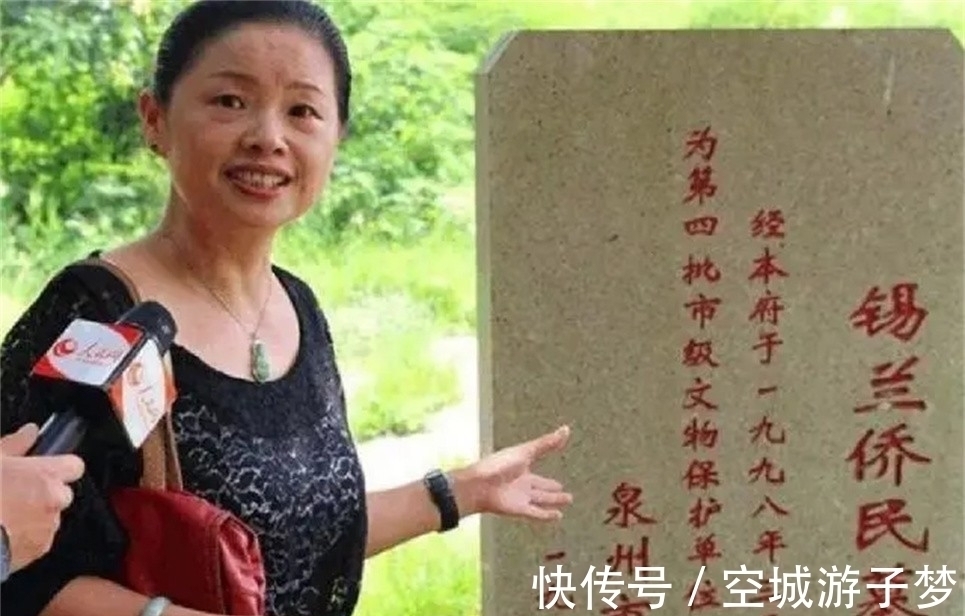 锡兰侨民
经本府于一九九八年
为第四批市级文物保护单
泉州
一
人民网
快传号 / 空城游子梦